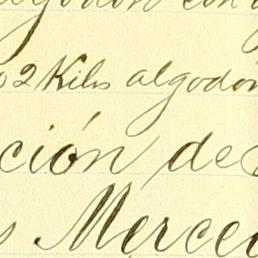 algodón con
02 Kilos algodón
ción de
s Merced